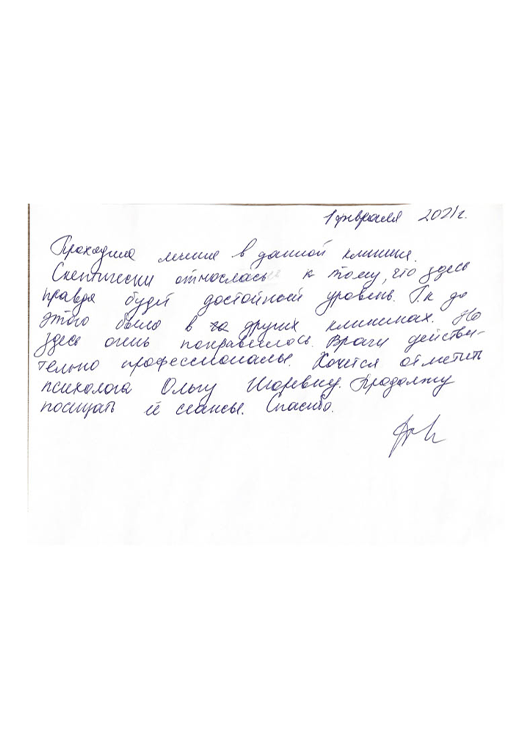 1 февраля 2021г.
Проходила лечение в данной клинике.
Скептически относилась к тому, что здесь
правда будет достойной уровень. Т.к до
этого была в других клиниках. Но
здесь очень понравилось. Врачи действи-
тельно профессионалы. Хочется отметить
психолога Ольгу Игоревну. Продолжу
посещать её сеансы. Спасибо.